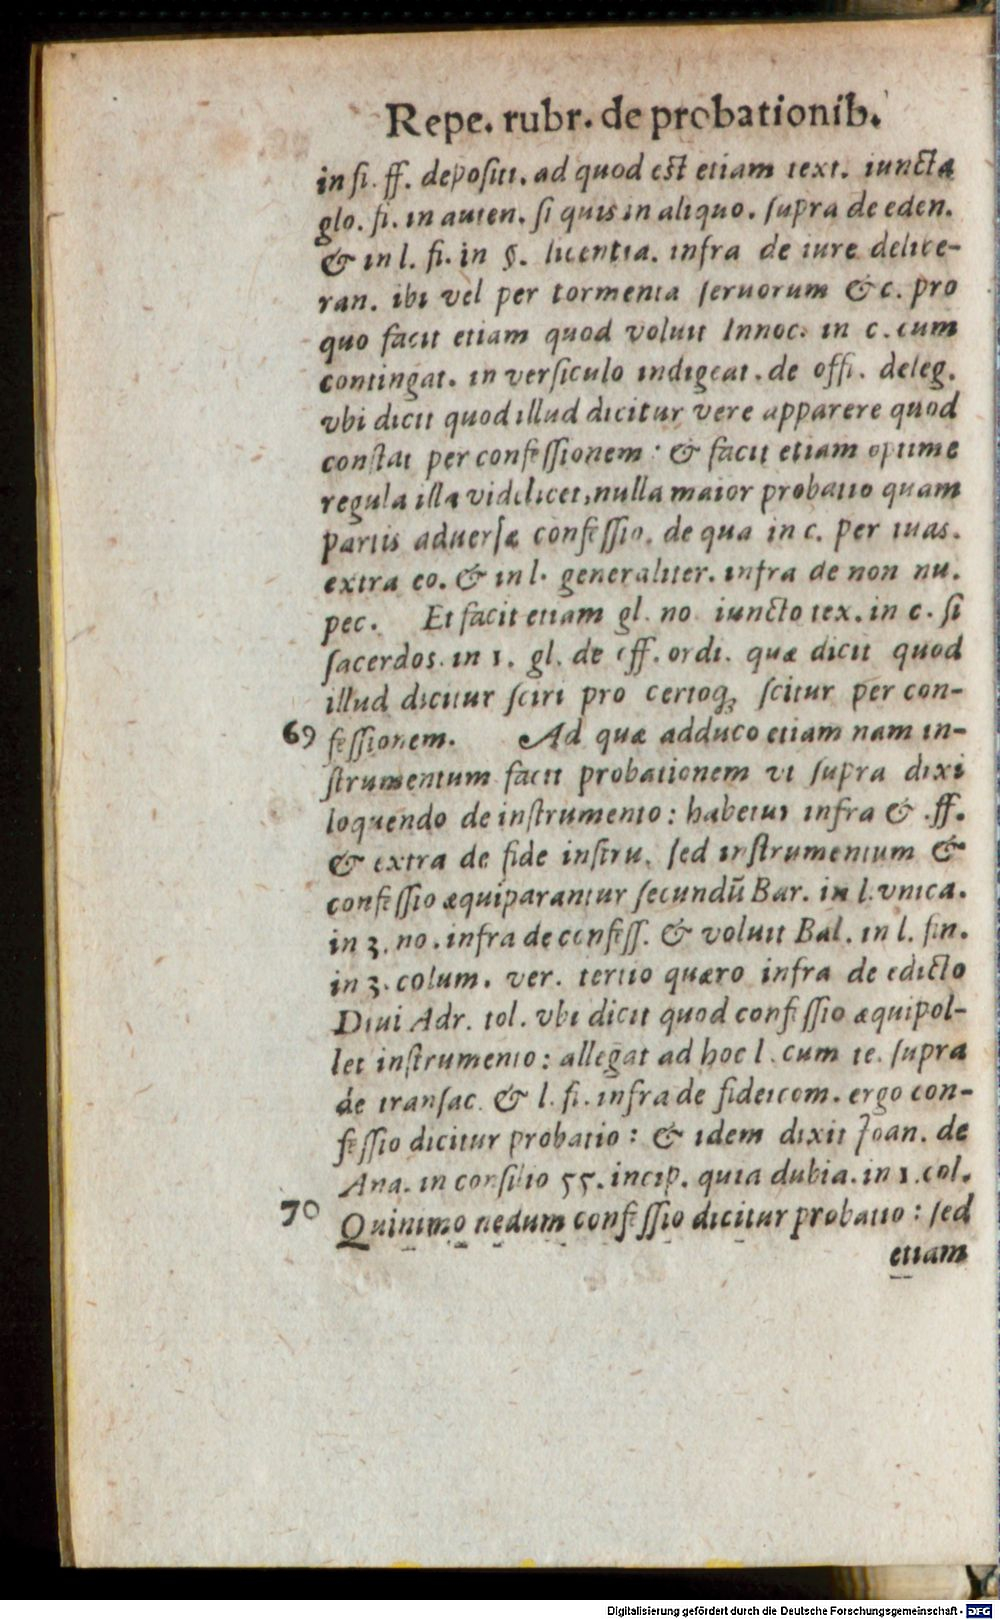 Repe. rubr. de probationib.
in fi. ff. depositi. ad quod est etiam text. iuncta
glo. fi. in auten. si quis in aliquo. supra de eden.
& in l. fi. in §. licentia. infra de iure delibe-
ran. ibi vel per tormenta seruorum &c. pro
quo facit etiam quod voluit Innoc. in c. cum
contingat. in versiculo indigeat. de offi. deleg.
vbi dicit quod illud dicitur vere apparere quod
constat per confessionem: & facit etiam optime
regula illa videlicet, nulla maior probatio quam
partis aduersæ confessio. de qua in c. per tuas.
extra eo. & in l. generaliter. infra de non nu.
pec. Et facit etiam gl. no iuncto tex. in c. si
sacerdos. in 1. gl. de off. ordi. quæ dicit quod
illud dicitur sciri pro certoq; scitur per con-
69 fessionem. Ad quæ adduco etiam nam in-
strumentum facit probationem vt supra dixi
loquendo de instrumento: habetur infra & .ff.
& extra de fide instru. sed instrumentum &
confessio æquiparantur secundũ Bar. in l. vnica.
in 3. no. infra de confess. & voluit Bal. in l. fin.
in 3. colum. ver. tertio quæro infra de edicto
Diui Adr. tol. vbi dicit quod confessio æquipol-
let instrumento: allegat ad hoc l. cum te. supra
de transac. & l. fi. infra de fideicom. ergo con-
fessio dicitur probatio: & idem dixit Joan. de
Ana. in consilio 55. incip. quia dubia. in 1. col.
70 Quinimo nedum confessio dicitur probatio: sed
etiam
Digitalisierung gefördert durch die Deutsche Forschungsgemeinschaft - DFG